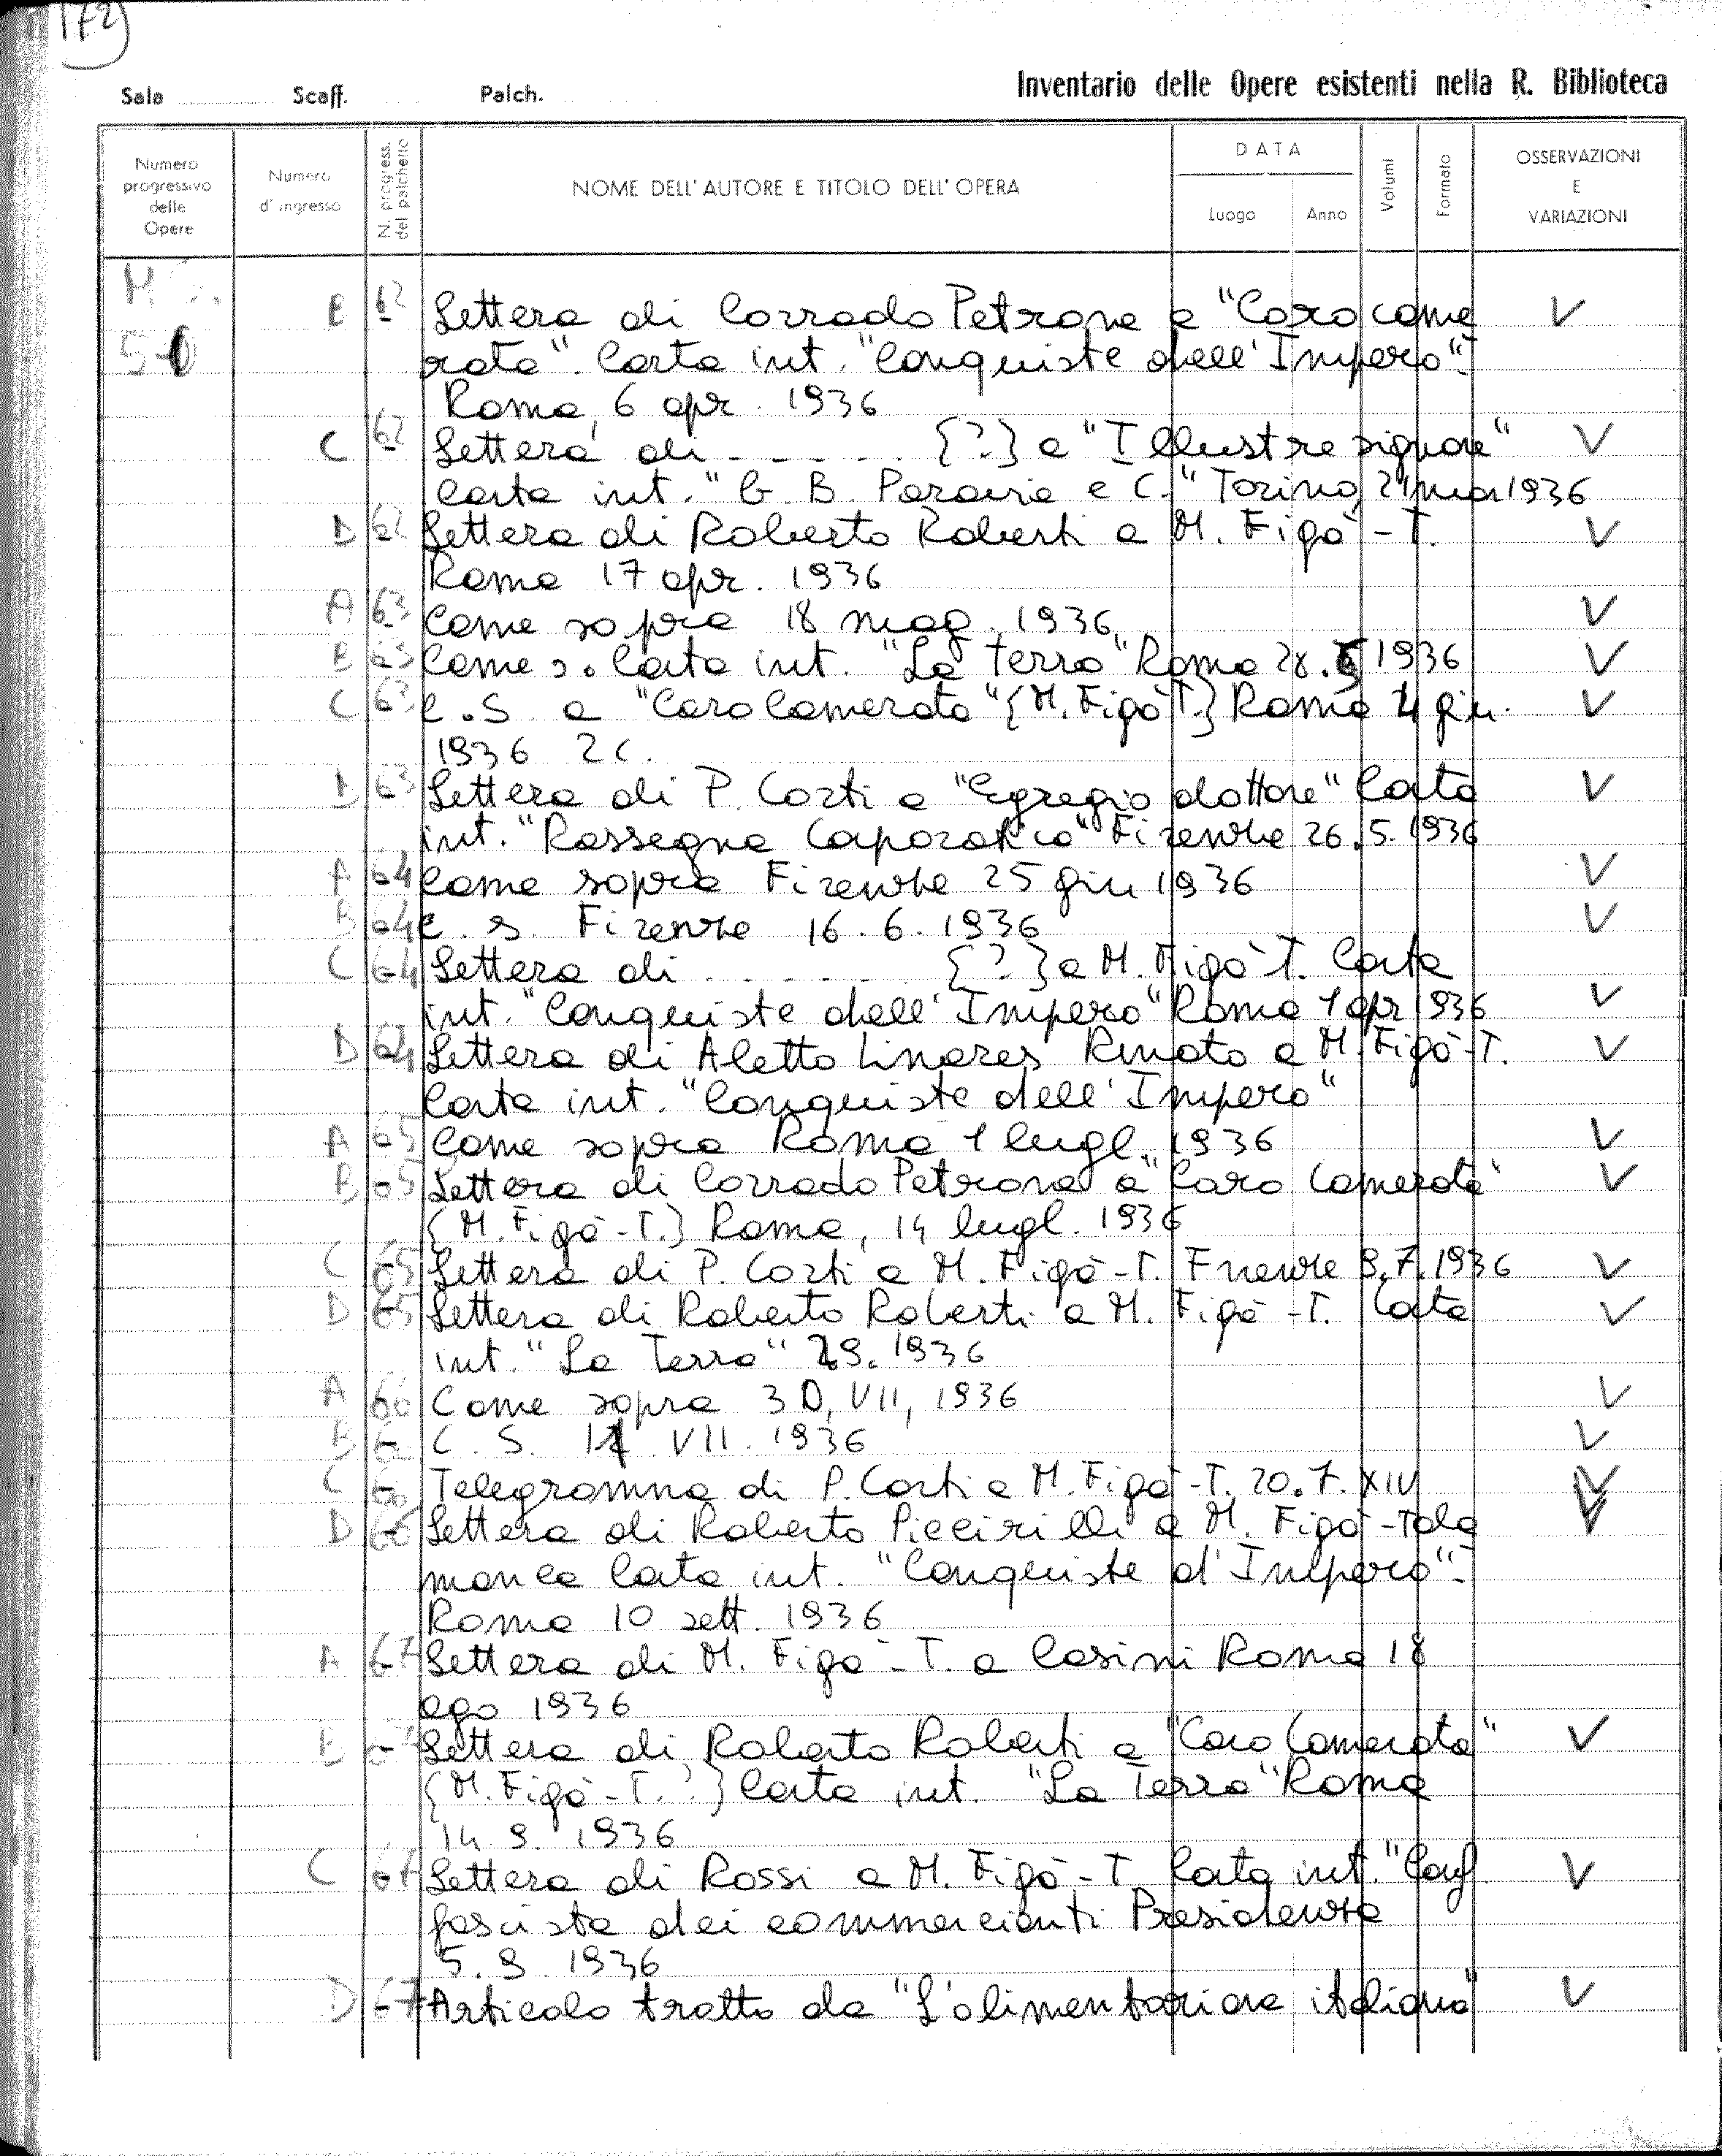 172
Sala Scaff. Palch. Inventario delle Opere esistenti nella R. Biblioteca
Numero progressivo delle Opere
Numero d'ingresso
N. progress. del palchetto
NOME DELL'AUTORE E TITOLO DELL'OPERA
DATA
Luogo Anno
Volumi
Formato
OSSERVAZIONI E VARIAZIONI
B 62 Lettera di Corrado Petrone a "Caro came V
rata". Carta int. "Conquiste dell'Impero".
Roma, 6 apr. 1936
C 62 Lettera di ...... {?} a "Illustre signore" V
Carta int. "G. B. Paravia e C." Torino, 21 mar 1936
D 62 Lettera di Roberto Roberti a M. Figà-T. V
Roma 17 apr. 1936
A 63 Come sopra 18 mag. 1936 V
B 63 Come s. Carta int. "La Terra" Roma 28.5 1936 V
C 63 C.S. a "Caro Camerata" {M. Figà T.} Roma 4 giu. V
1936 2 c.
D 63 Lettera di P. Corti a "Egregio dottore" Carta V
int. "Rassegna Corporativa" Firenze 26.5.1936
A 64 Come sopra Firenze 25 giu 1936 V
B 64 C. s. Firenze 16.6.1936 V
C 64 Lettera di ...... {?} a M. Figà T. Carta
int. "Conquiste dell'Impero" Roma 1 apr 1936 V
D 64 Lettera di Aletto Linares Renato a M. Figà-T. V
Carta int. "Conquiste dell'Impero"
A 65 Come sopra Roma 1 lugl. 1936 V
B 65 Lettera di Corrado Petrone a "Caro Camerata" V
{M. Figà-T.} Roma, 14 lugl. 1936
C 65 Lettera di P. Corti a M. Figà-T. Firenze 9.7.1936 V
D 65 Lettera di Roberto Roberti a M. Figà-T. Carta V
int. "La Terra" 1936
A 66 Come sopra 30, VII, 1936 V
B C. S. VII. 1936 V
C 66 Telegramma di P. Corti a M. Figà-T. 20.7.XIV V
D 66 Lettera di Roberto Piccirilli a M. Figà-Tala V
manca Carta int. "Conquiste d'Impero".
Roma 10 sett. 1936
A 67 Lettera di M. Figà-T. a Casini Roma 18
ago 1936
B 67 Lettera di Roberto Roberti a "Caro Camerata" V
{M. Figà-T.?} Carta int. "La Terra" Roma
14 9. 1936
C 67 Lettera di Rossi a M. Figà-T. Carta int. "Conf V
fascista dei commercianti Presidenza
5.9.1936
D 67 Articolo tratto da "L'alimentazione italiana" V